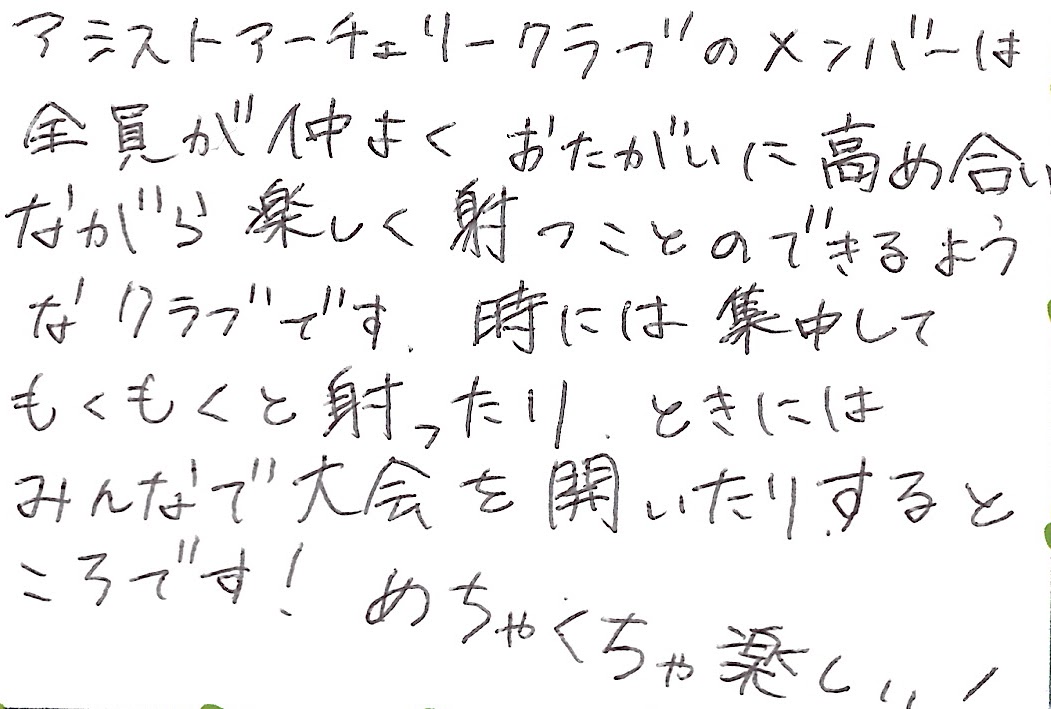 アシストアーチェリークラブのメンバーは
全員が仲よく おたがいに高め合い
ながら楽しく射つことのできるよう
なクラブです. 時には集中して
もくもくと射ったり. ときには
みんなで大会を開いたりすると
ころです! めちゃくちゃ楽しい!